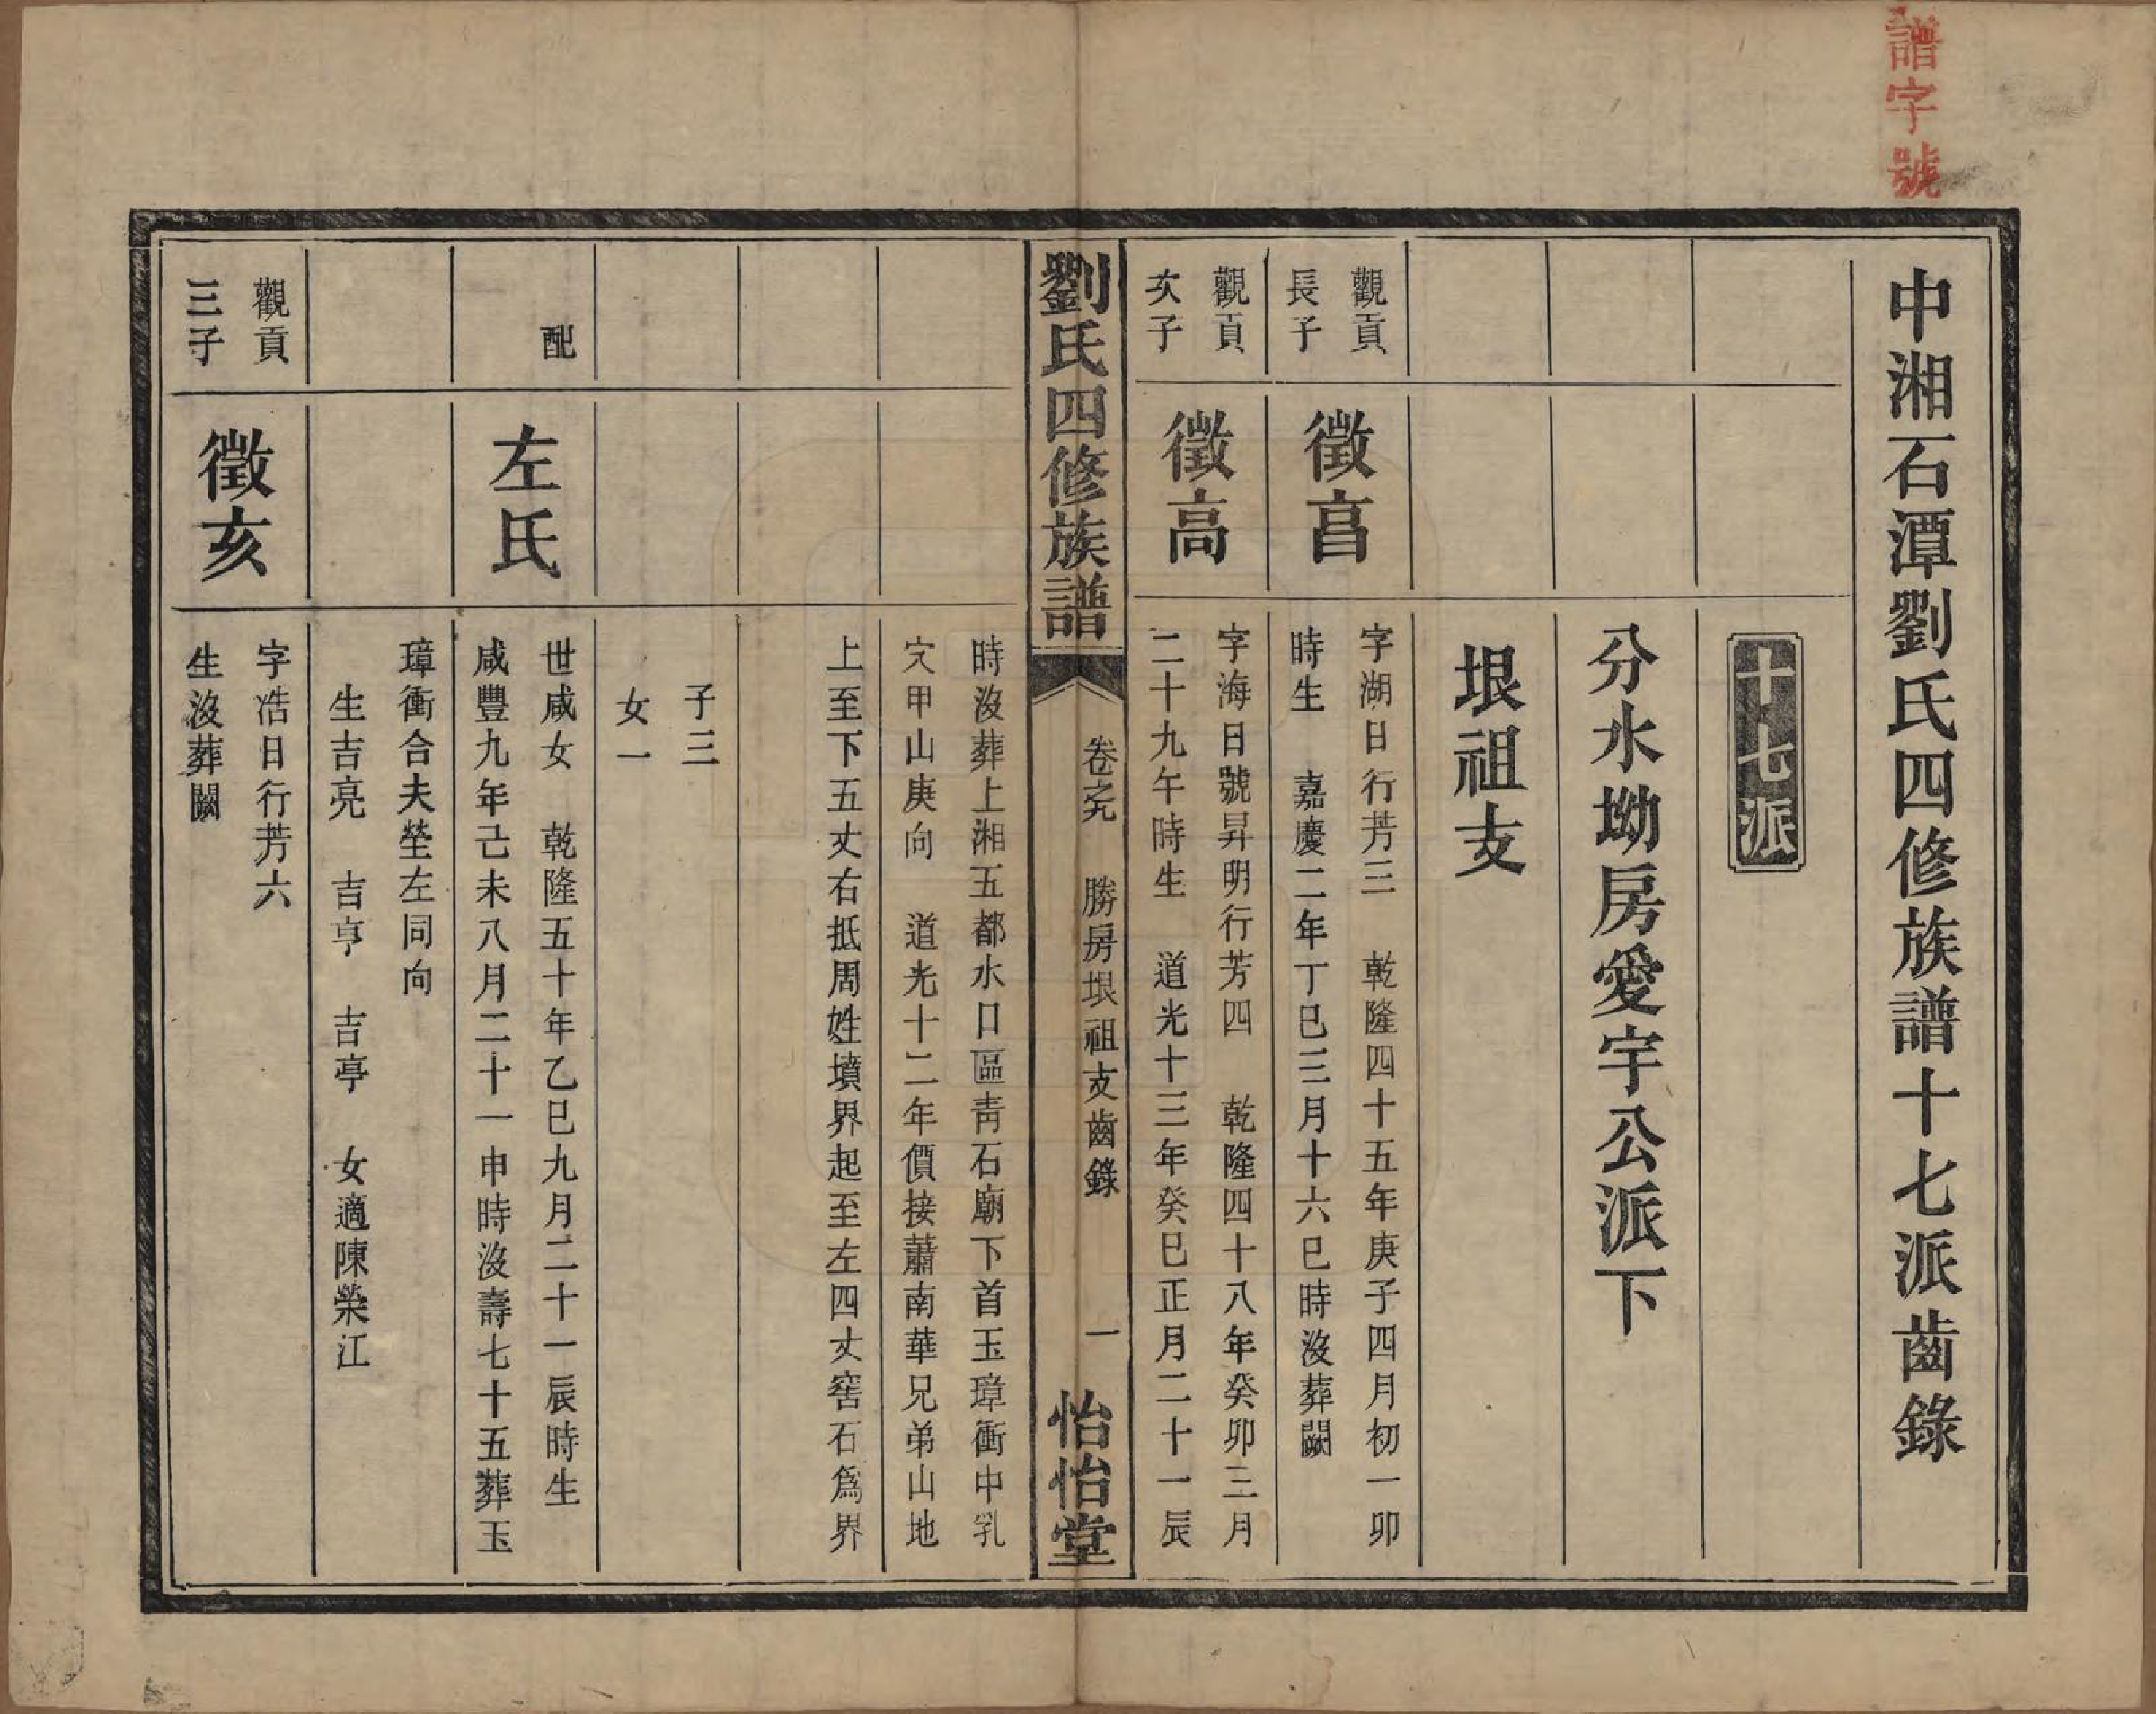 譜字號
中湘石潭劉氏四修族譜十七派齒錄
十七派
分水坳房愛宇公派下
垠祖支
觀貢
長子
徵昌
字湖日行芳三　乾隆四十五年庚子四月初一卯
時生　嘉慶二年丁巳三月十六巳時沒葬闕
觀貢
次子
徵高
字海日號昇明行芳四　乾隆四十八年癸卯三月
二十九午時生　道光十三年癸巳正月二十一辰
劉氏四修族譜
卷之九　勝房垠祖支齒錄
一
怡怡堂
時沒葬上湘五都水口區青石廟下首玉璋衝中乳
穴甲山庚向　道光十二年價接蕭南華兄弟山地
上至下五丈右抵周姓墳界起至左四丈窖石爲界
子三
女一
配
左氏
世咸女　乾隆五十年乙巳九月二十一辰時生
咸豐九年己未八月二十一申時沒壽七十五葬玉
璋衝合夫塋左同向
生吉亮　吉亨　吉亭　女適陳榮江
觀貢
三子
徵亥
字浩日行芳六
生沒葬闕